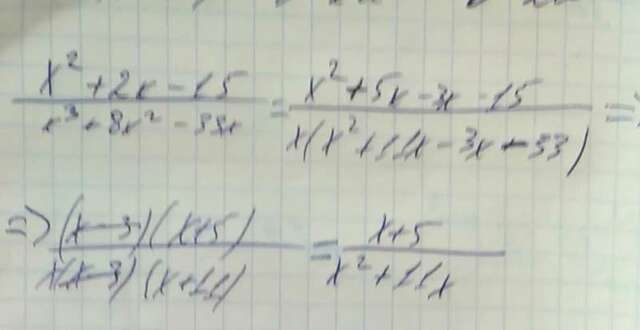 x² + 2x - 15 / x³ + 8x² - 33x = x² + 5x - 3x - 15 / x(x² + 11x - 3x - 33) =>
=> (x-3)(x+5) / x(x-3)(x+11) = x+5 / x² + 11x